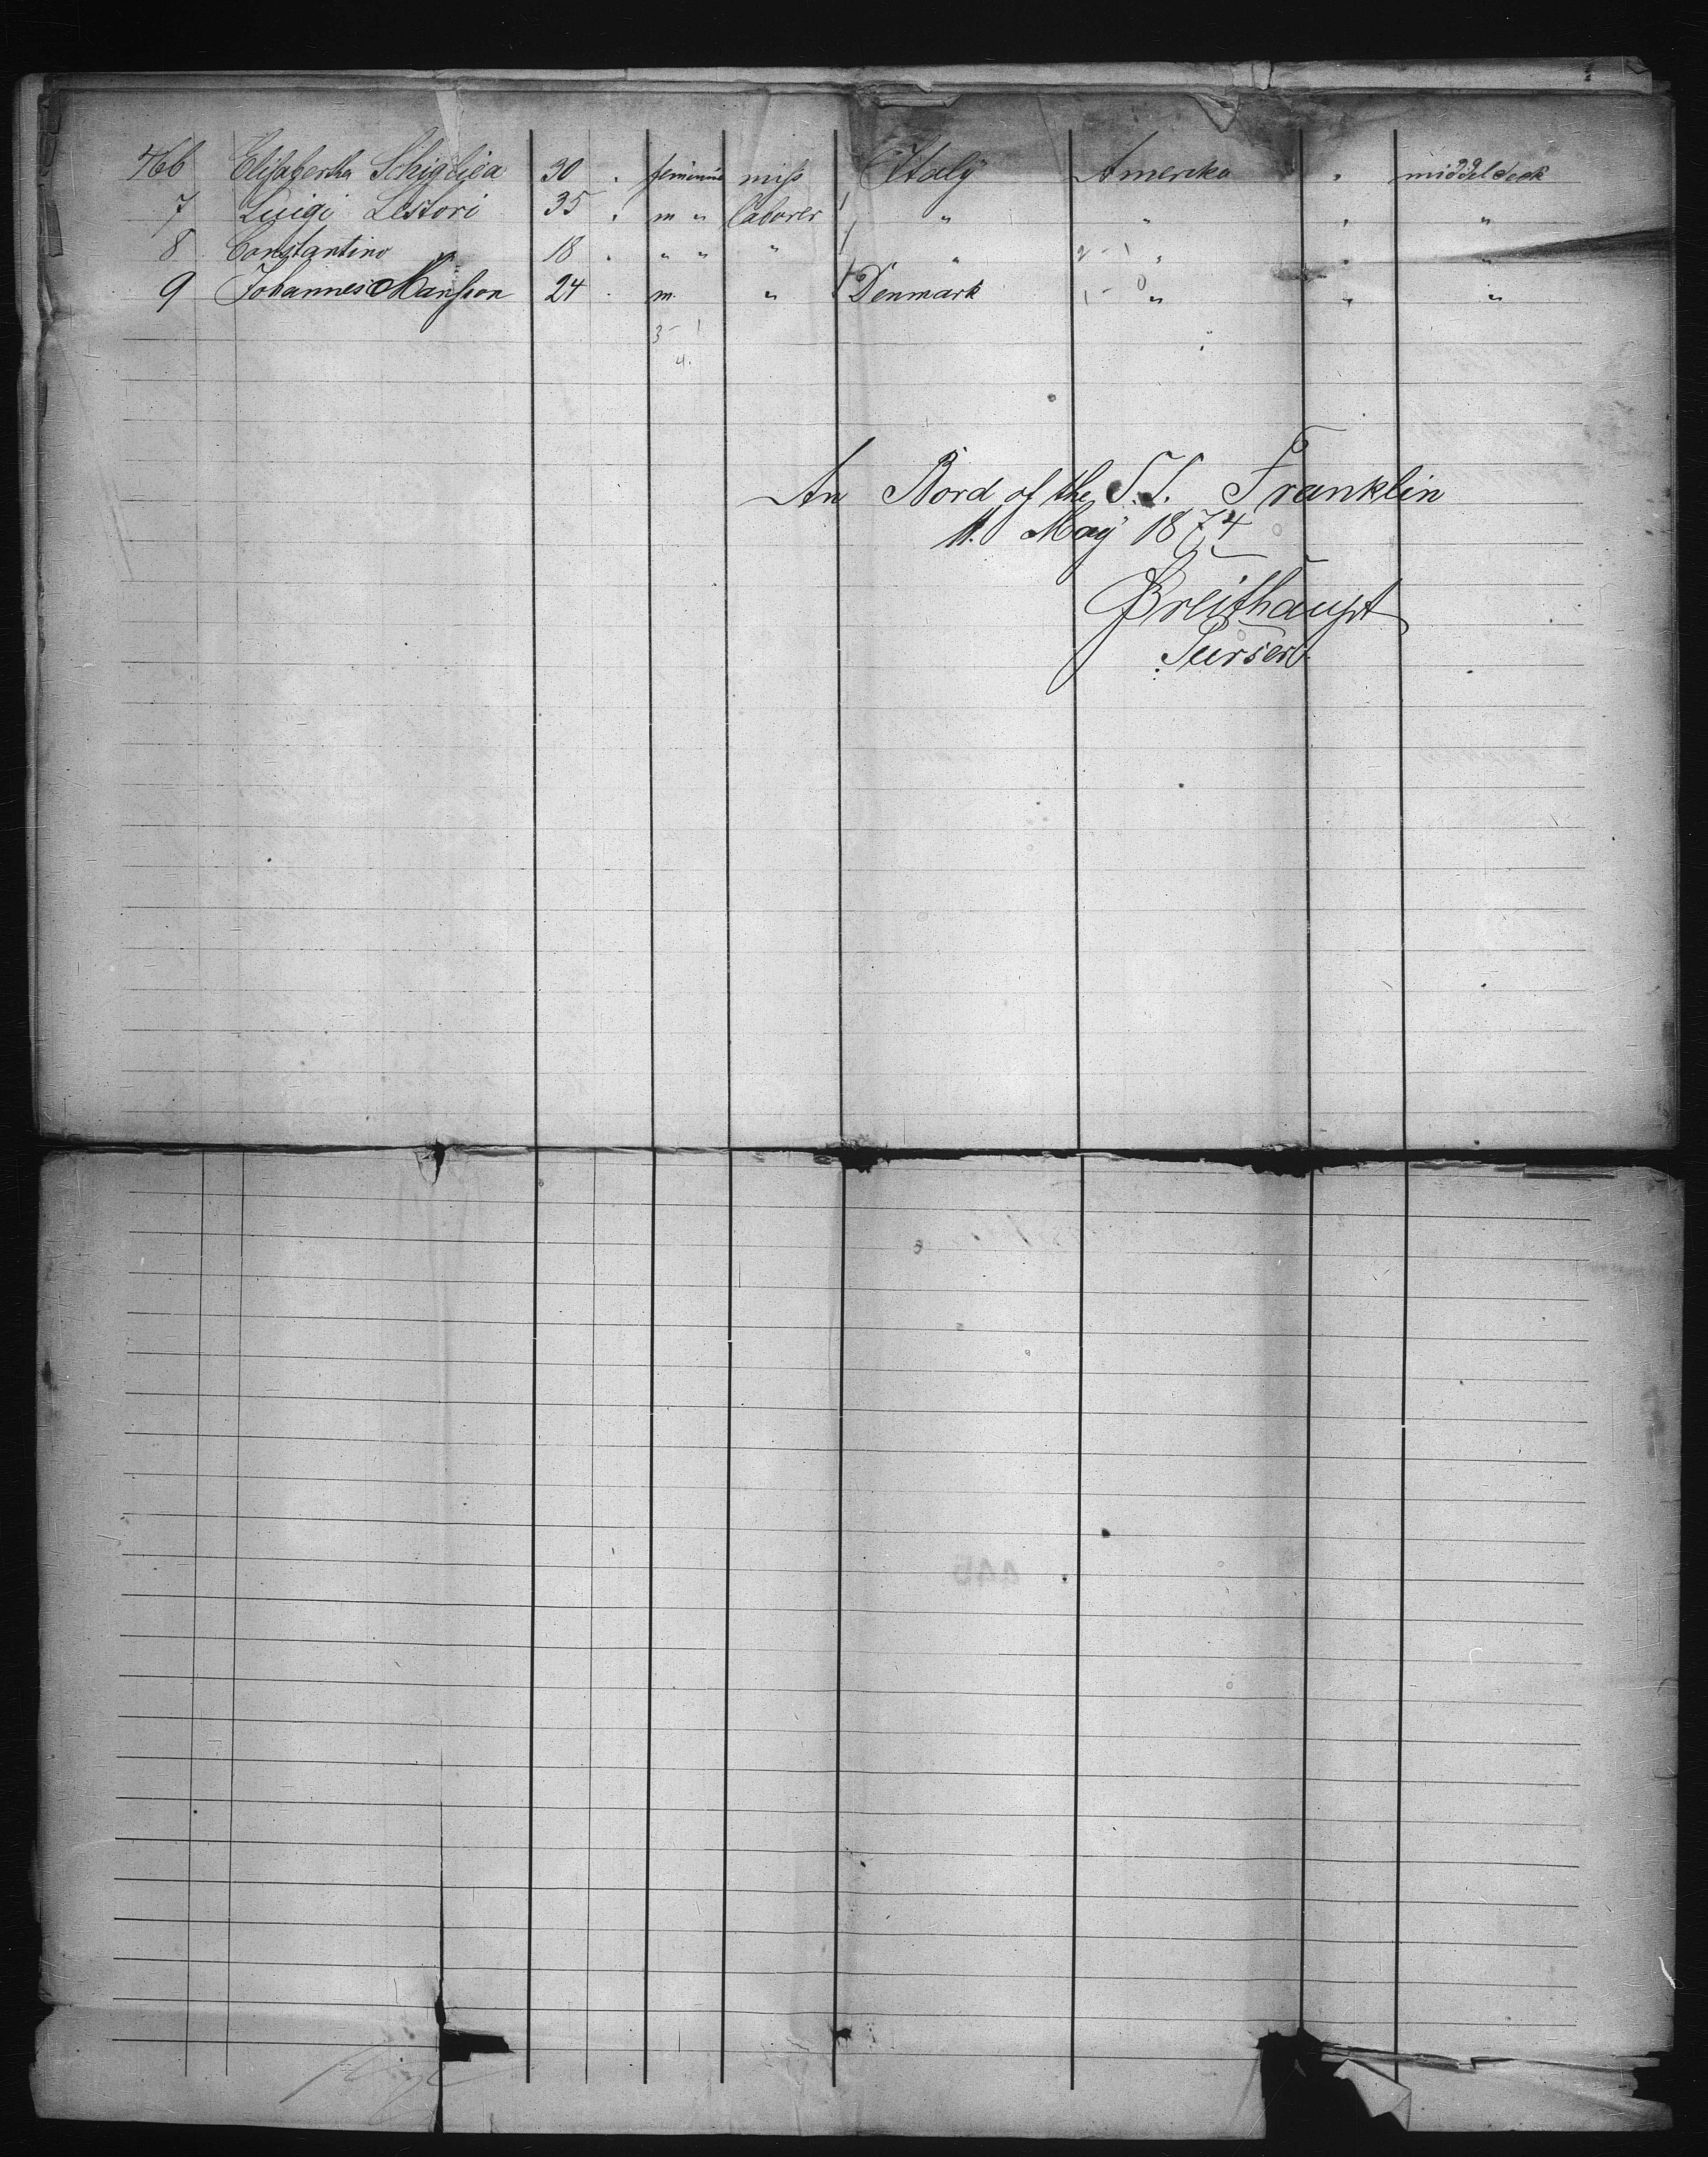 466 Elisabertha Schiglica 30 feminine miss Italy Amerika " middeldeck
7 Luigi Lestori 35 m " laborer " " " "
8 Constantino " 18 " " " " " " "
9 Johannes Mansson 24 m. " Denmark " " "
3 - 1
4.
An Bord of the S.S. Franklin
11. May 1874
Breithaupt
Purser.